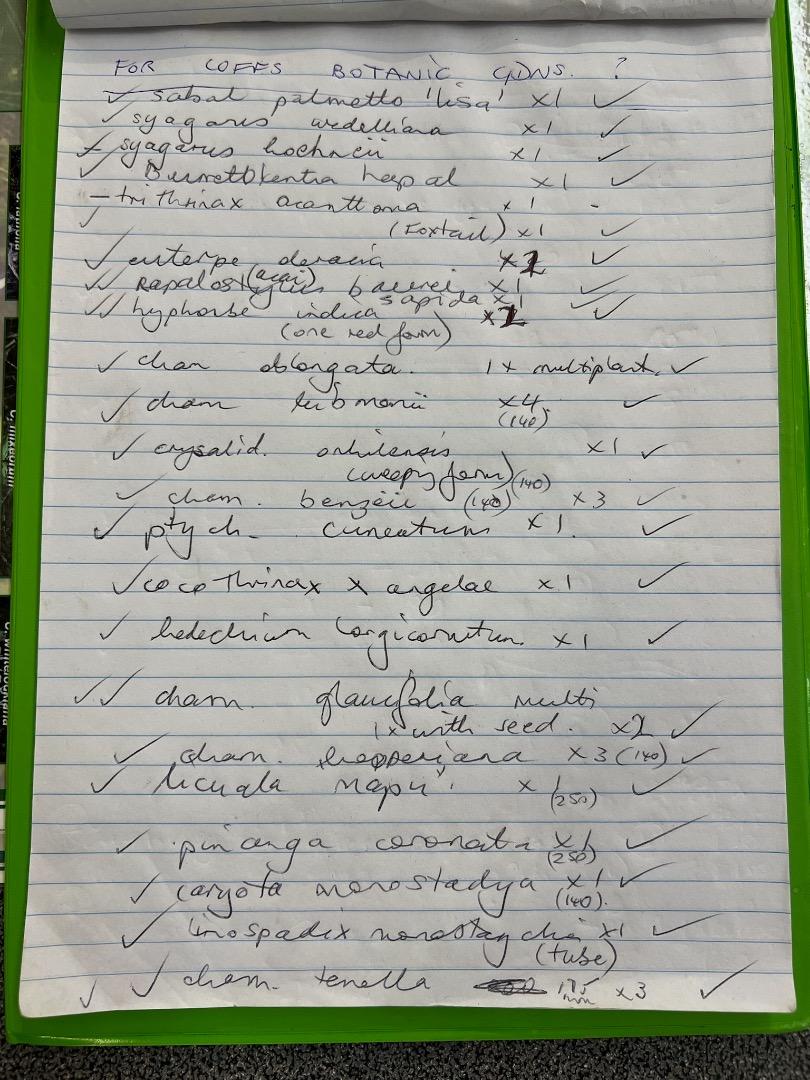 FOR COFFS BOTANIC GDNS. ?
✓ sabal palmetto 'lisa' x1 ✓
✓ syagarus wedelliana x1 ✓
✓ syagarus hoehneii x1 ✓
✓ Burrettokentia hapal x1 ✓
– trithrinax acanthoma x1 -
✓ (Foxtail) x1 ✓
✓ euterpe oleracia x2 ✓
(acai)
✓✓ Rapalostylus baueri x1 ✓
sapida x1 ✓
✓✓ hyphorbe indica x2 ✓
(one red form)
✓ cham oblongata. 1x multiplant. ✓
✓ cham x4 ✓
(140)
✓ crysalid. x1 ✓
(weepy form) (140)
✓ cham. benzeii (140) x3 ✓
✓ ptych. cuneatum x1. ✓
✓ cocothrinax x angelae x1 ✓
✓ hedechium longicornutum x1 ✓
✓✓ cham. glaucifolia multi
1x with seed. x2 ✓
✓ cham. hooperiana x3 (140) ✓
✓ licuala mapu'. x1 ✓
(250)
✓ pinanga coronata x1 ✓
(250)
✓ caryota monostadya x1 ✓
(140).
✓ linospadix monostaychia x1 ✓
(tube)
✓ ✓ cham. tenella 175 x3 ✓
mm